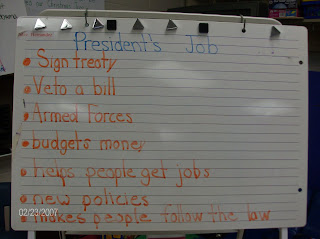 President's Job
• Sign treaty
• Veto a bill
• Armed Forces
• budgets money
• helps people get jobs
• new policies
02/23/2007
makes people follow the law